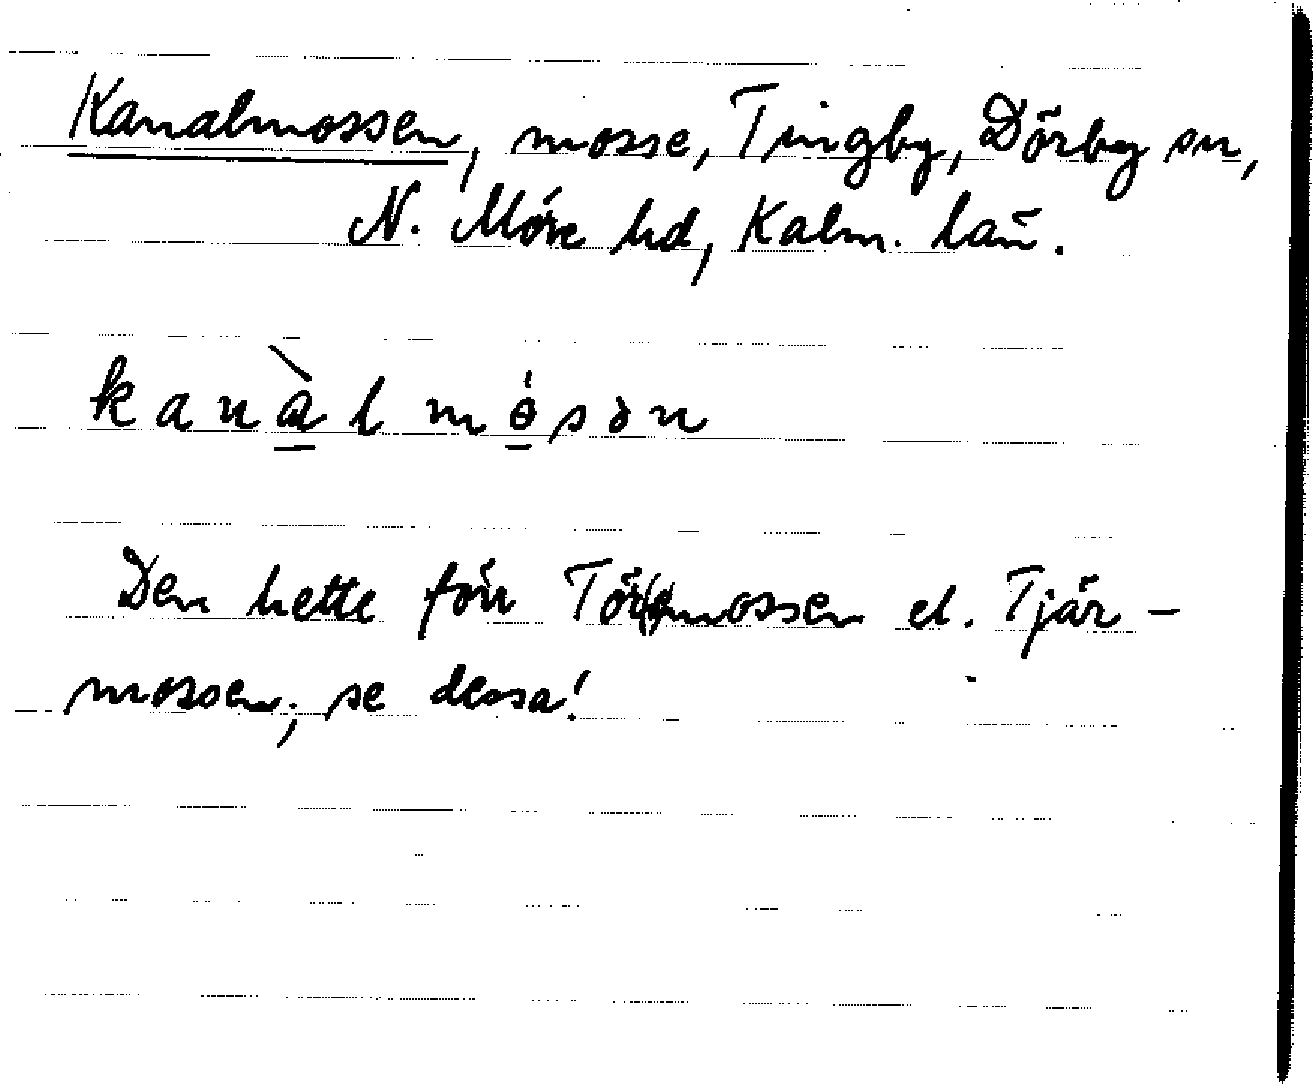 Kanalmossen, mosse, Tingby, Dörby sn,
N. Möre hd, Kalm. län.
kanàlmósən
Den hette förr Tör(e)mossen el. Tjär-
mossen; se dessa!